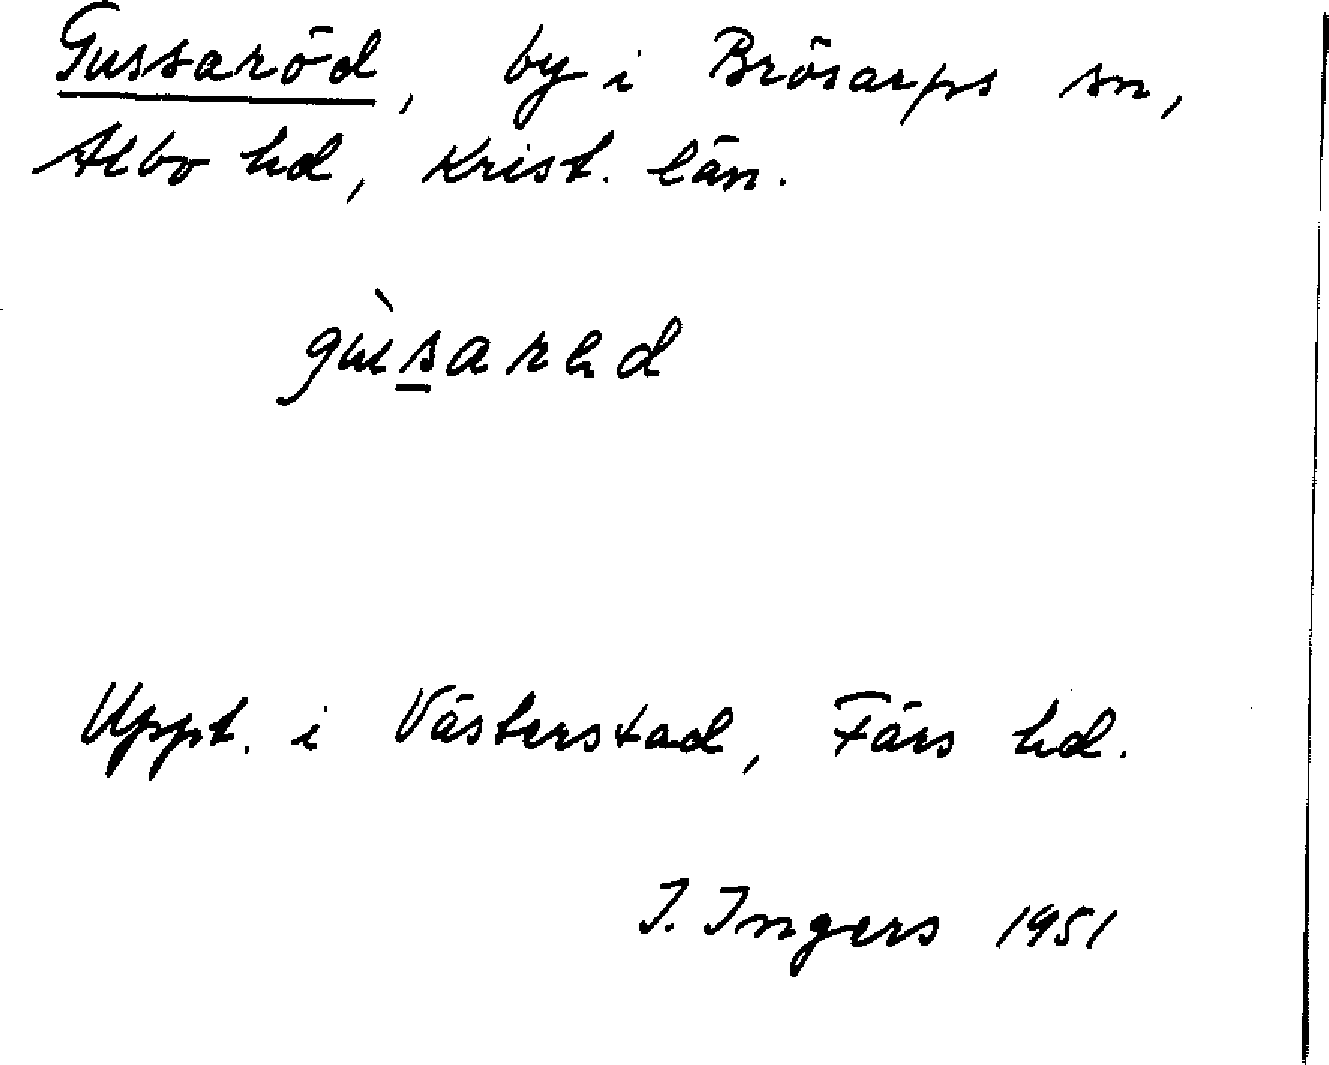 Gussaröd, by i Brösarps sn,
Albo hd, Krist. län.
Uppt. i Västerstad, Färs hd.
I. Ingers 1951